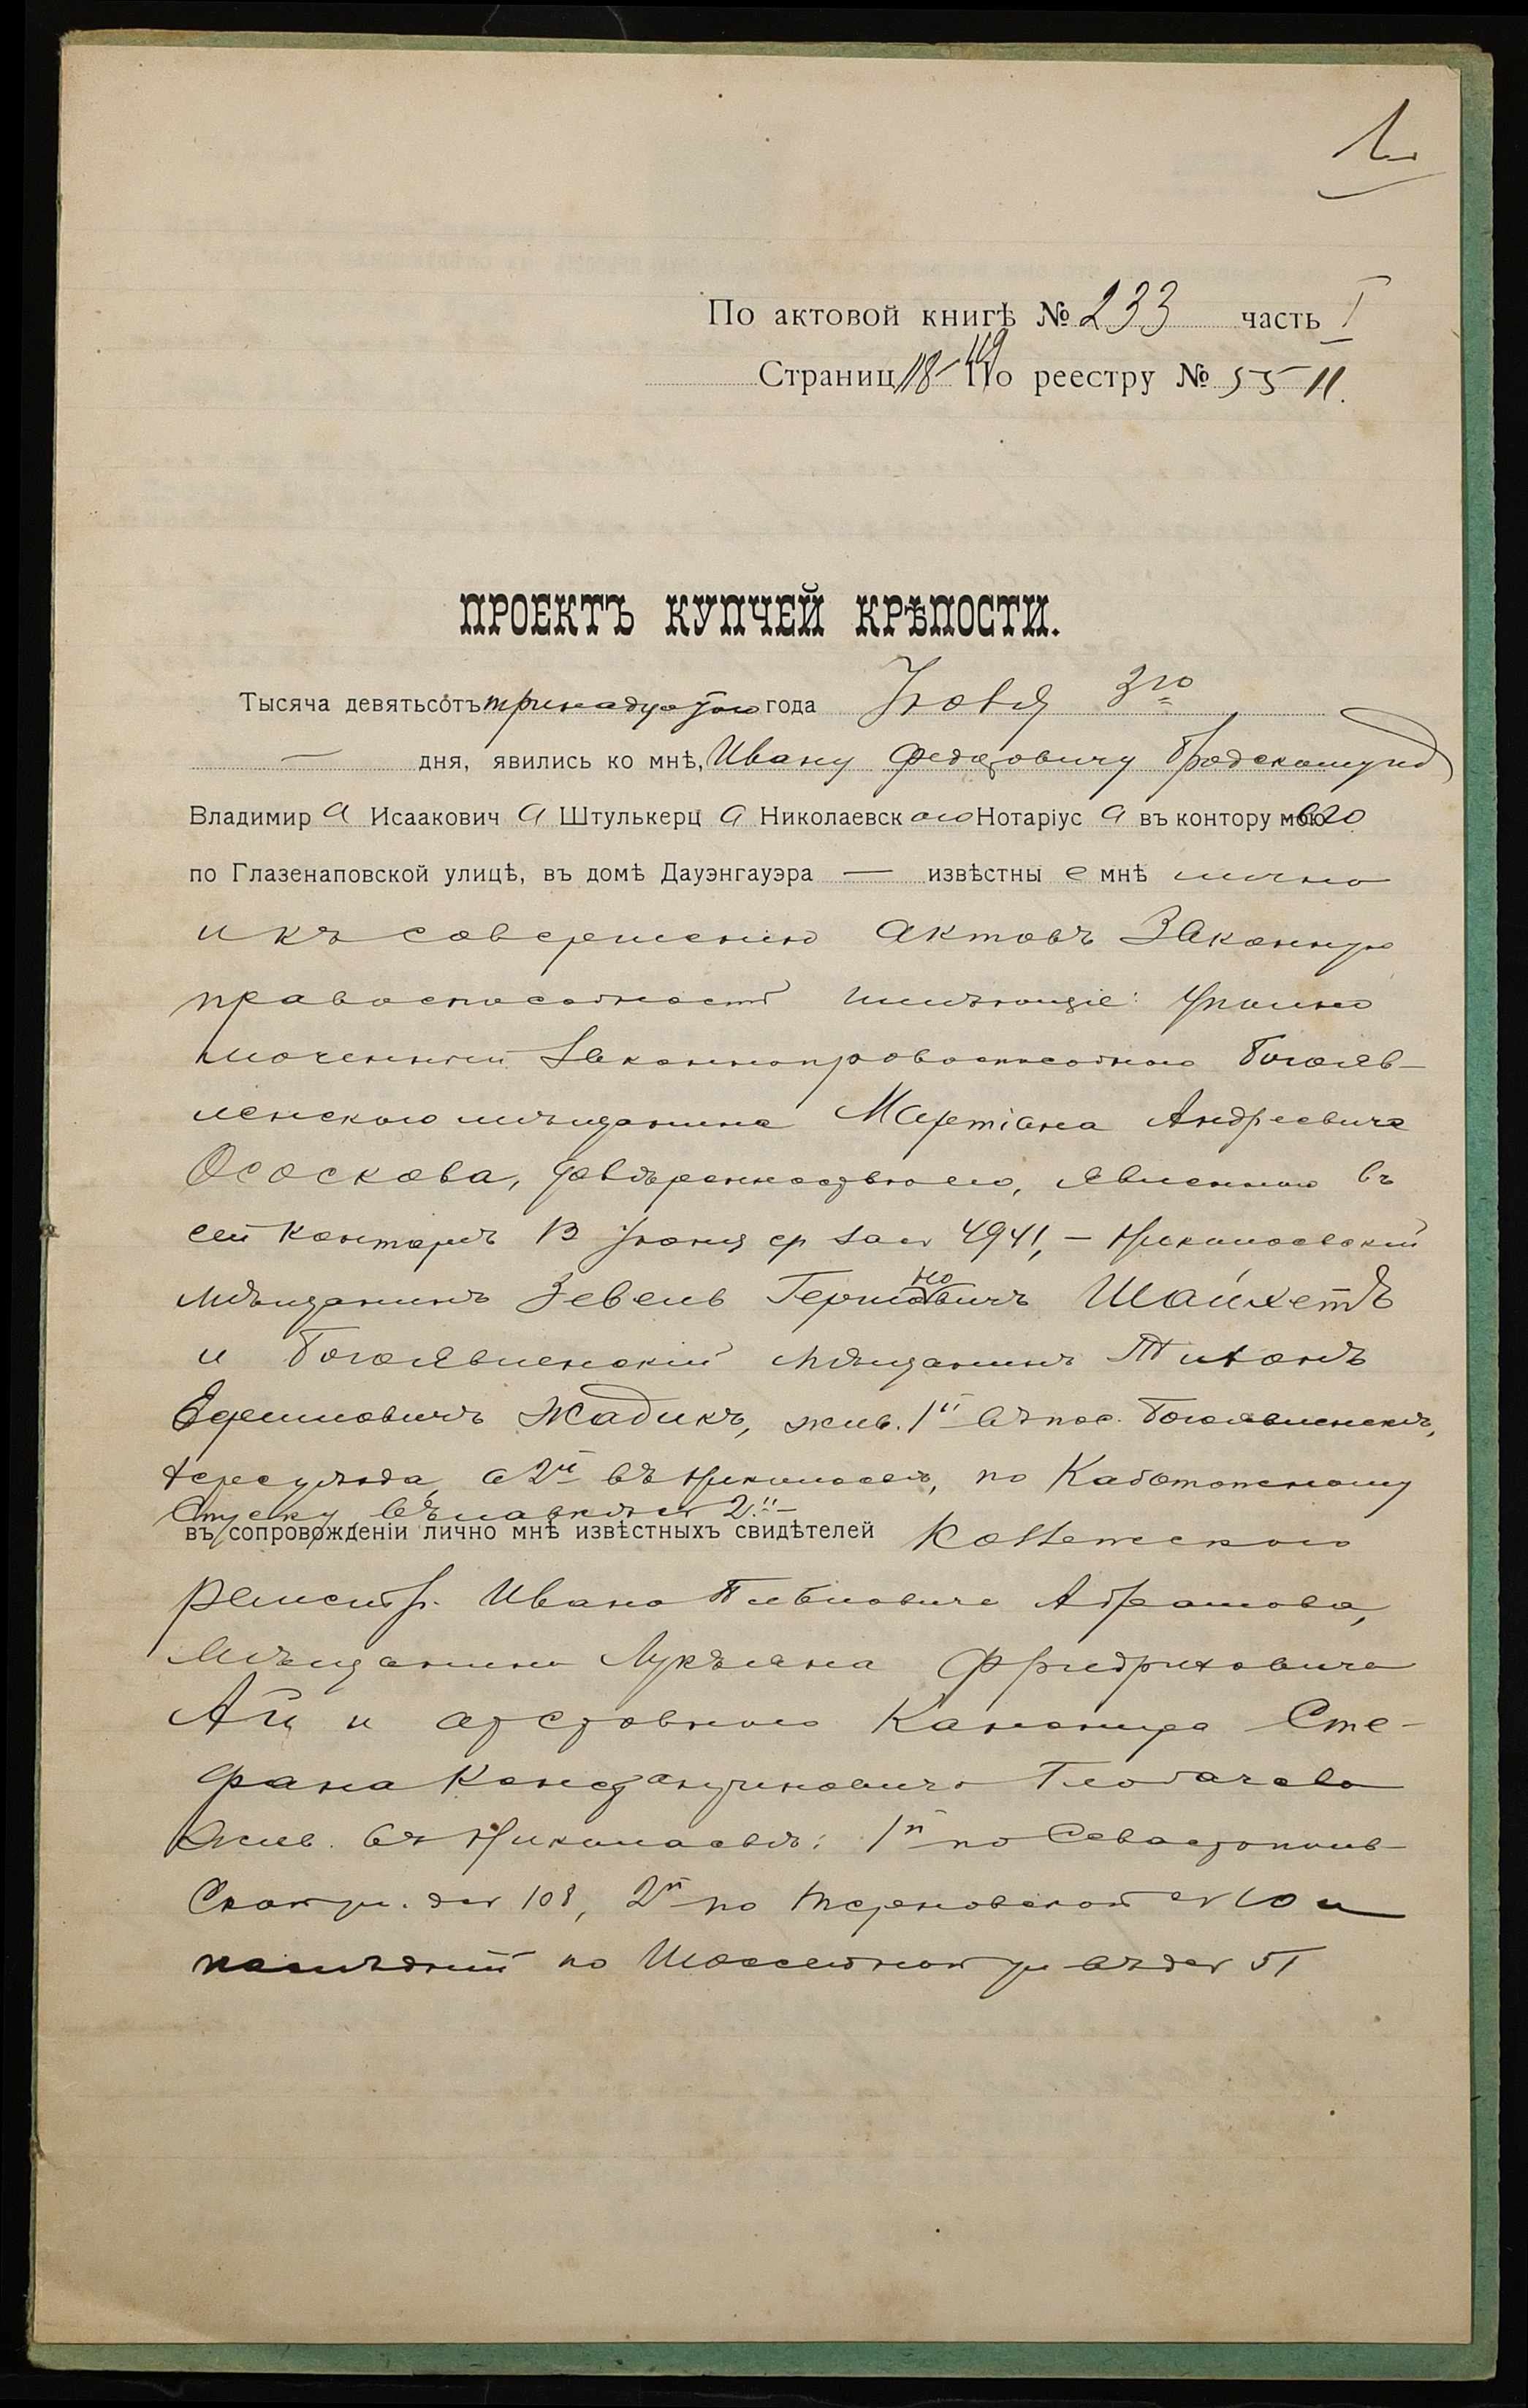 1
По актовой книгѣ № 233 часть I
Страниц 118-119 По реестру № 5511.
ПРОЕКТЪ КУПЧЕЙ КРѢПОСТИ.
Тысяча девятьсотъ тринадцатого года Іюля 3го
дня, явились ко мнѣ, Ивану Федоровичу Бродскому и д
Владимира Исааковича Штулькерца Николаевскаго Нотаріуса въ контору его
по Глазенаповской улицѣ, въ домѣ Дауэнгауэра — извѣстные мнѣ лично
и къ совершенію актовъ законную
правоспособность имѣющіе: уполно
моченный законноправоспособнаго Богояв-
ленскаго мѣщанина Мартіана Андреевича
Ососкова, довѣренностью его, явленною въ
сей конторѣ 13 Іюня ср за № 4941, – Николаевскій
мѣщанинъ Зевель Гершоновичъ Шайхетъ
и Богоявленскій мѣщанинъ Тихонъ
Ефимовичъ Жадикъ, жив. 1й въ пос. Богоявленскѣ,
Херс уѣзда, а 2й въ Николаевѣ, по Каботажному
Спуску въ лавкѣ № 2й
въ сопровожденіи лично мнѣ извѣстныхъ свидѣтелей Коллежскаго
регистр. Ивана Павловича Абрамова,
мѣщанина Лукьяна Фридриховича
Ай и отставного Канонира Сте-
фана Константиновича Глобачева
жив. въ Николаевѣ: 1й по Севастополь-
ской ул. д № 108, 2й по Терновской № 10 и
послѣдній по Шоссейной ул въ д № 51